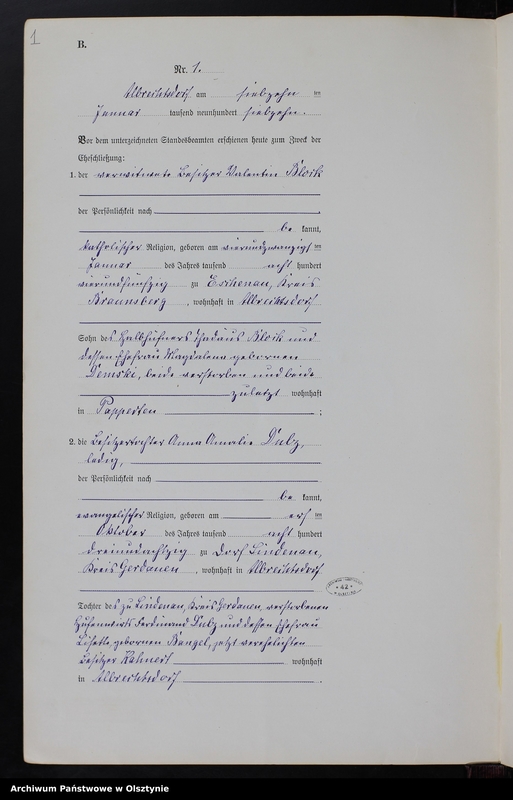 1
B.
Nr. 1.
Albrechtsdorf am siebzehn ten
Januar tausend neunhundert siebzehn.
Vor dem unterzeichneten Standesbeamten erschienen heute zum Zweck der
Eheschließung:
1. der verwitwete Besitzer Valentin Bloik
der Persönlichkeit nach
be kannt,
katholischer Religion, geboren am vierundzwanzigs ten
Januar des Jahres tausend acht hundert
vierundfünfzig zu Eschenau, Kreis
Braunsberg, wohnhaft in Albrechtsdorf
Sohn des Halbhüfners Thadäus Bloik und
dessen Ehefrau Magdalena gebornen
Demski, beide verstorben und beide
zuletzt wohnhaft
in Papperten ;
2. die Besitzertochter Anna Amalie
ledig,
der Persönlichkeit nach
be kannt,
evangelischer Religion, geboren am ers ten
Oktober des Jahres tausend acht hundert
dreiundachtzig zu Dorf Lindenau,
Kreis Gerdauen, wohnhaft in Albrechtsdorf
42
Tochter des zu Lindenau, Kreis Gerdauen, verstorbenen
Hufenwirts Ferdinand und dessen Ehefrau
Lisette, gebornen Bangel, jetzt verehelichten
Besitzer wohnhaft
in Albrechtsdorf .
Archiwum Państwowe w Olsztynie